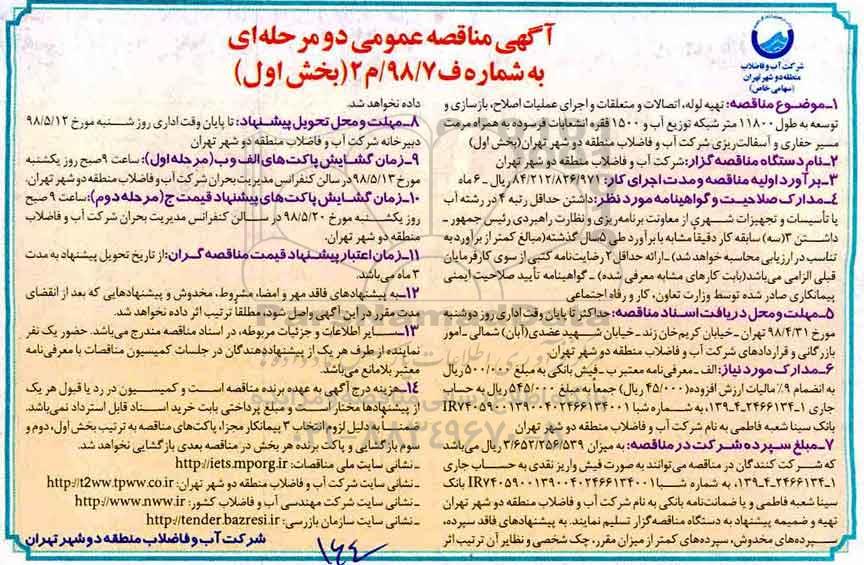 آگهی مناقصه عمومی دو مرحله‌ای
به شماره ف ۹۸/۷/م۲ (بخش اول)
شرکت آب و فاضلاب
منطقه دو شهر تهران
(سهامی خاص)
۱ـ موضوع مناقصه: تهیه لوله، اتصالات و متعلقات و اجرای عملیات اصلاح، بازسازی و
توسعه به طول ۱۱۸۰۰ متر شبکه توزیع آب و ۱۵۰۰ فقره انشعابات فرسوده به همراه مرمت
مسیر حفاری و آسفالت‌ریزی شرکت آب و فاضلاب منطقه دو شهر تهران (بخش اول)
۲ـ نام دستگاه مناقصه گزار: شرکت آب و فاضلاب منطقه دو شهر تهران
۳ـ برآورد اولیه مناقصه و مدت اجرای کار: ۸۴/۲۱۲/۸۲۶/۹۷۱ ریال ـ ۶ ماه
۴ـ مدارک صلاحیت و گواهینامه مورد نظر: داشتن حداقل رتبه ۴ در رشته آب
یا تأسیسات و تجهیزات شهری از معاونت برنامه‌ریزی و نظارت راهبردی رئیس جمهور ـ
داشتن ۳ (سه) سابقه کار دقیقاً مشابه با برآورد طی ۵ سال گذشته (مبالغ کمتر از برآورد به
تناسب در ارزیابی محاسبه خواهد شد) ـ ارائه حداقل ۲ رضایت‌نامه کتبی از سوی کارفرمایان
قبلی الزامی می‌باشد (بابت کارهای مشابه معرفی شده) ـ گواهینامه تأیید صلاحیت ایمنی
پیمانکاری صادر شده توسط وزارت تعاون، کار و رفاه اجتماعی
۵ـ مهلت و محل دریافت اسناد مناقصه: حداکثر تا پایان وقت اداری روز دوشنبه
مورخ ۹۸/۴/۳۱ تهران ـ خیابان کریم خان زند ـ خیابان شهید عضدی (آبان) شمالی ـ امور
بازرگانی و قراردادهای شرکت آب و فاضلاب منطقه دو شهر تهران
۶ـ مدارک مورد نیاز: الف ـ معرفی‌نامه معتبر ب ـ فیش بانکی به مبلغ ۵۰۰/۰۰۰ ریال
به انضمام ۹٪ مالیات ارزش افزوده (۴۵/۰۰۰ ریال) جمعاً به مبلغ ۵۴۵/۰۰۰ ریال به حساب
جاری ۱ـ۲۴۶۶۱۳۴ـ۴ـ۱۳۹، به شماره شبا IR۷۴۰۵۹۰۰۱۳۹۰۰۴۰۲۴۶۶۱۳۴۰۰۱
بانک سینا شعبه فاطمی به نام شرکت آب و فاضلاب منطقه دو شهر تهران
۷ـ مبلغ سپرده شرکت در مناقصه: به میزان ۳/۶۵۲/۲۵۶/۵۳۹ ریال می‌باشد
که شرکت کنندگان در مناقصه می‌توانند به صورت فیش واریز نقدی به حساب جاری
۱ـ۲۴۶۶۱۳۴ـ۴ـ۱۳۹، به شماره شبا IR۷۴۰۵۹۰۰۱۳۹۰۰۴۰۲۴۶۶۱۳۴۰۰۱ بانک
سینا شعبه فاطمی و یا ضمانت‌نامه بانکی به نام شرکت آب و فاضلاب منطقه دو شهر تهران
تهیه و ضمیمه پیشنهاد به دستگاه مناقصه‌گزار تسلیم نمایند. به پیشنهادهای فاقد سپرده،
سپرده‌های مخدوش، سپرده‌های کمتر از میزان مقرر، چک شخصی و نظایر آن ترتیب اثر
داده نخواهد شد.
۸ـ مهلت و محل تحویل پیشنهاد: تا پایان وقت اداری روز شنبه مورخ ۹۸/۵/۱۲
دبیرخانه شرکت آب و فاضلاب منطقه دو شهر تهران
۹ـ زمان گشایش پاکت‌های الف و ب (مرحله اول): ساعت ۹ صبح روز یکشنبه
مورخ ۹۸/۵/۱۳ در سالن کنفرانس مدیریت بحران شرکت آب و فاضلاب منطقه دو شهر تهران.
۱۰ـ زمان گشایش پاکت‌های پیشنهاد قیمت ج (مرحله دوم): ساعت ۹ صبح
روز یکشنبه مورخ ۹۸/۵/۲۰ در سالن کنفرانس مدیریت بحران شرکت آب و فاضلاب
منطقه دو شهر تهران.
۱۱ـ زمان اعتبار پیشنهاد قیمت مناقصه گران: از تاریخ تحویل پیشنهاد به مدت
۳ ماه می‌باشد.
۱۲ـ به پیشنهادهای فاقد مهر و امضا، مشروط، مخدوش و پیشنهادهایی که بعد از انقضای
مدت مقرر در این آگهی واصل شود، مطلقا ترتیب اثر داده نخواهد شد.
۱۳ـ سایر اطلاعات و جزئیات مربوطه، در اسناد مناقصه مندرج می‌باشد. حضور یک نفر
نماینده از طرف هر یک از پیشنهاددهندگان در جلسات کمیسیون مناقصات با معرفی‌نامه
معتبر بلامانع می‌باشد.
۱۴ـ هزینه درج آگهی به عهده برنده مناقصه است و کمیسیون در رد یا قبول هر یک
از پیشنهادها مختار است و مبلغ پرداختی بابت خرید اسناد قابل استرداد نمی‌باشد.
ـ بنا به دلیل لزوم انتخاب ۳ پیمانکار مجزا، پاکت‌های مناقصه به ترتیب بخش اول، دوم و
سوم بازگشایی و پاکت برنده هر بخش در مناقصه بعدی بازگشایی نخواهد شد.
ـ نشانی سایت ملی مناقصات: http://iets.mporg.ir
ـ نشانی سایت شرکت آب و فاضلاب منطقه دو شهر تهران: http://t2ww.tpww.co.ir
ـ نشانی سایت شرکت مهندسی آب و فاضلاب کشور: http://www.nww.ir
ـ نشانی سایت سازمان بازرسی: http://tender.bazresi.ir
شرکت آب و فاضلاب منطقه دو شهر تهران
۱۴۴